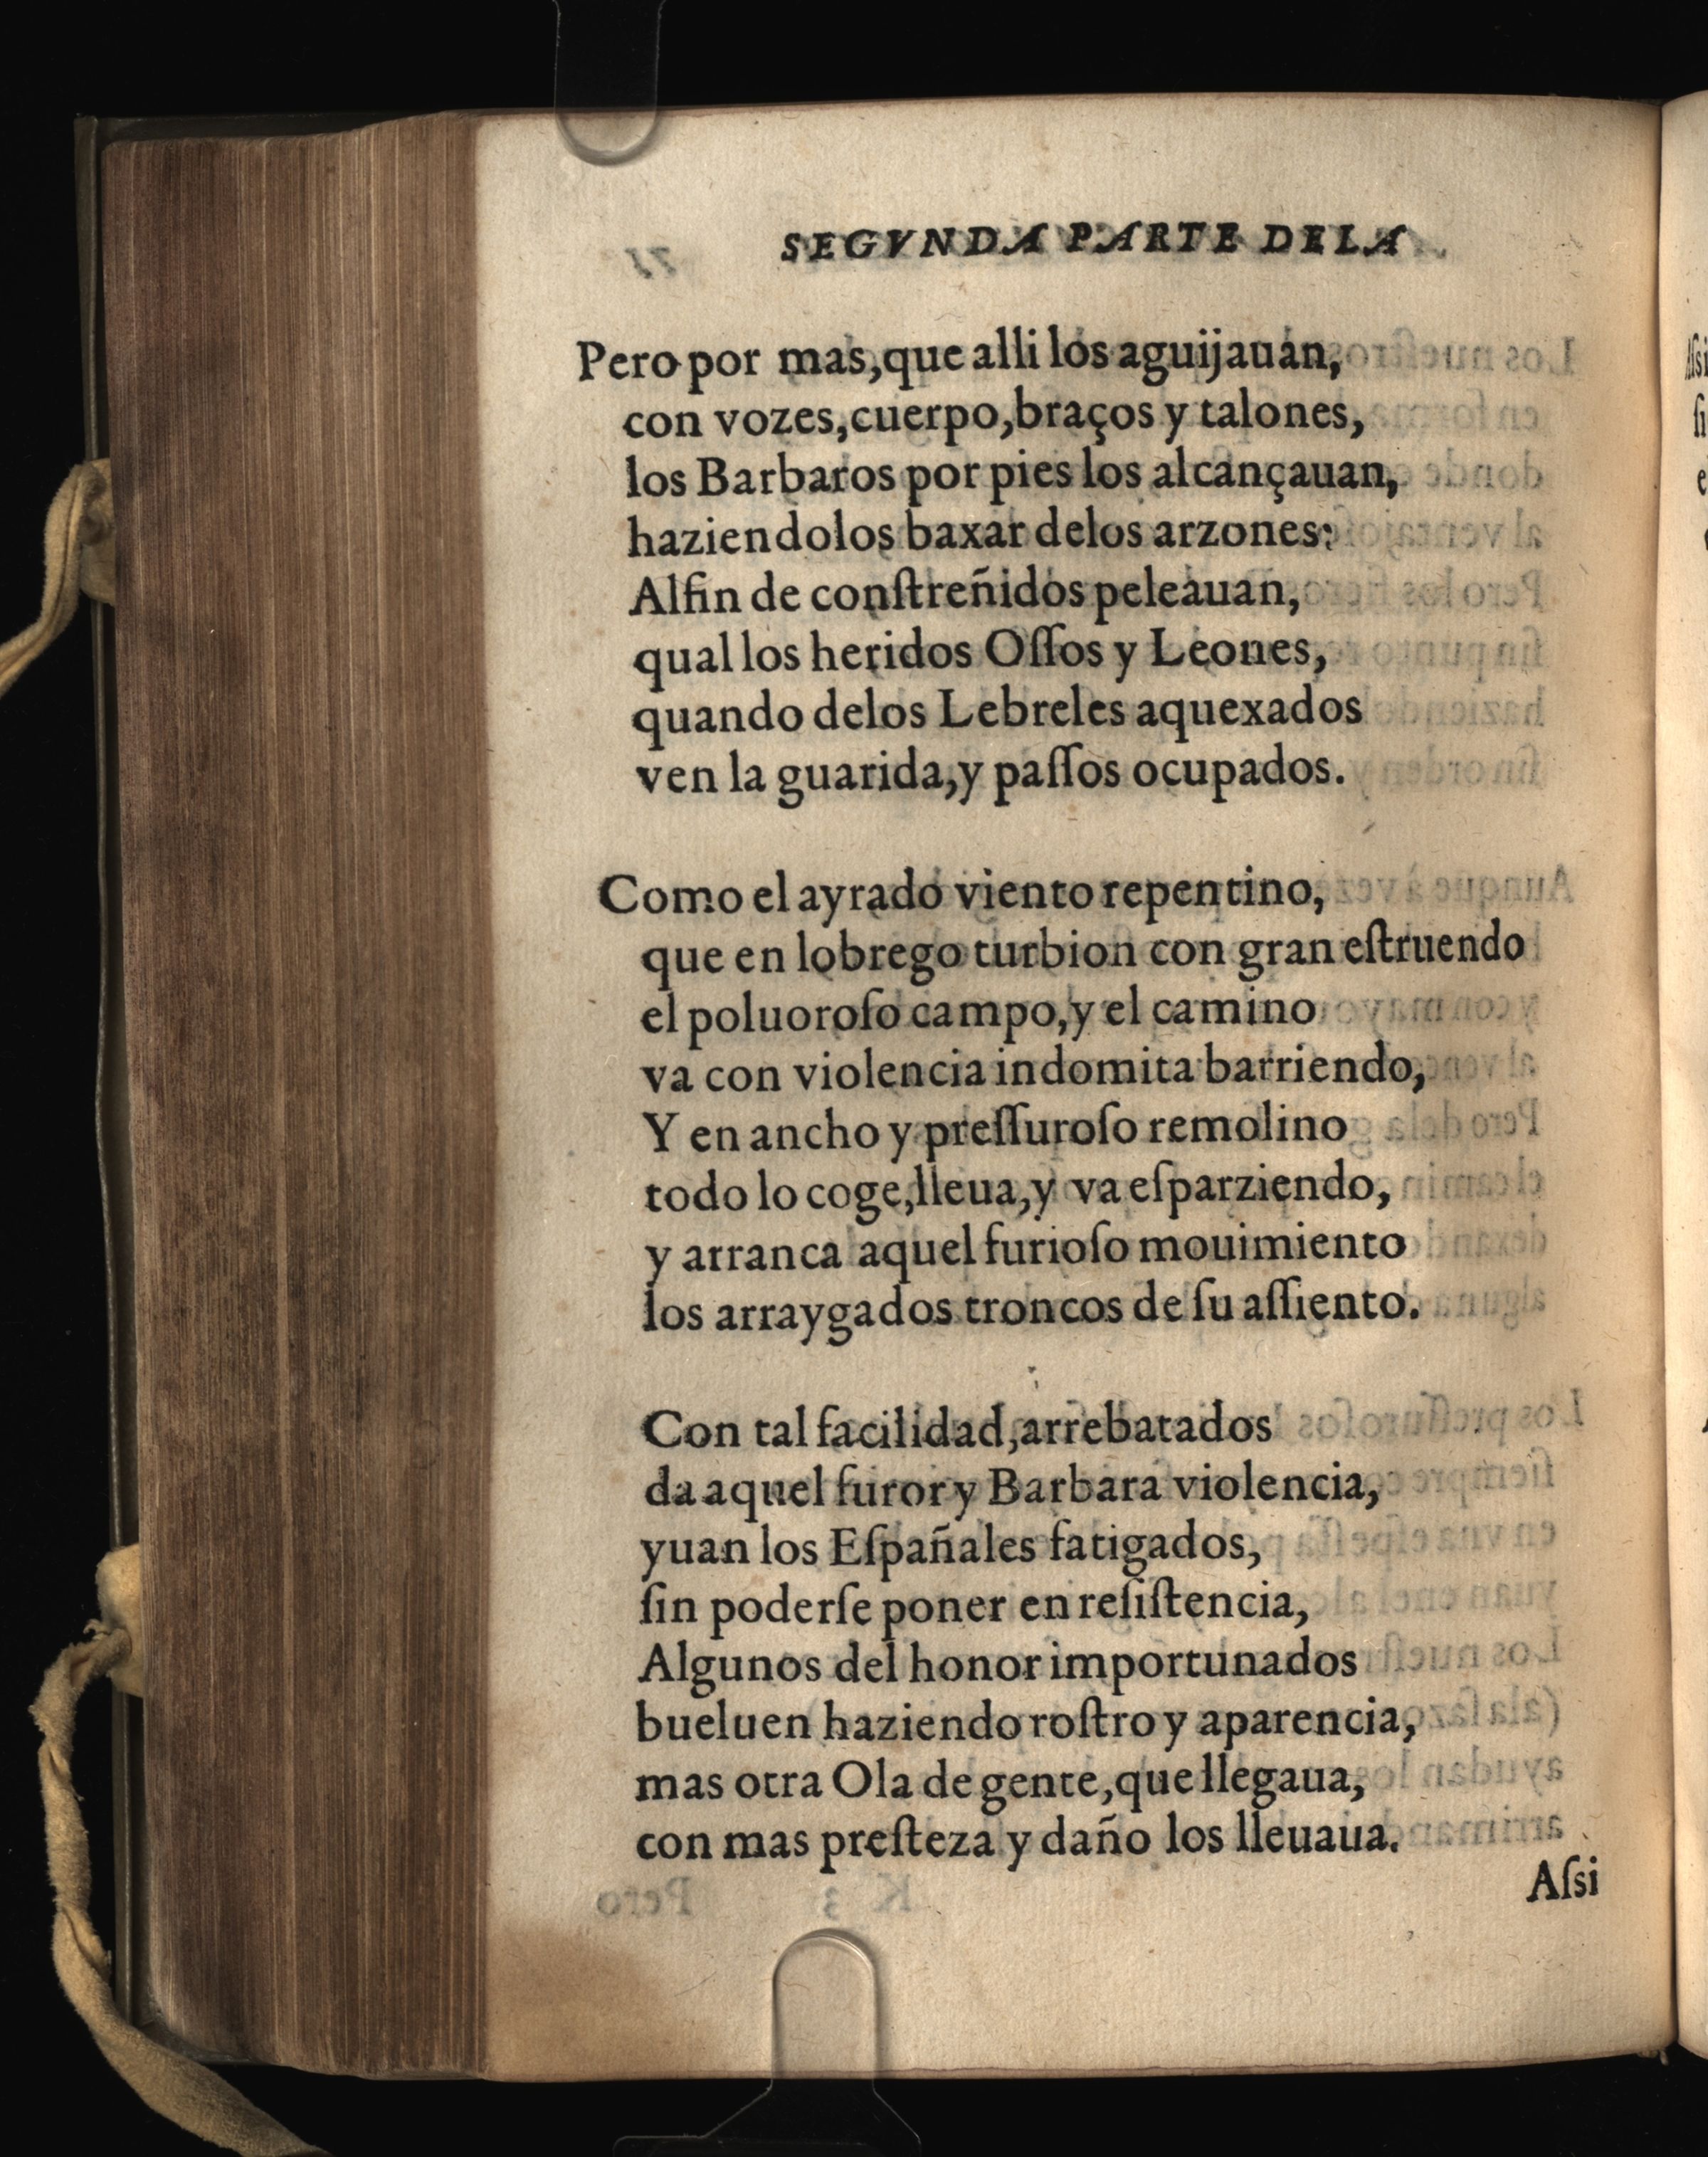 SEGVNDA PARTE DELA
Pero por mas, que alli los aguijauan,
con vozes, cuerpo, braços y talones,
los Barbaros por pies los alcançauan,
haziendolos baxar delos arzones:
Alfin de conſtreñidos peleauan,
qual los heridos Oſſos y Leones,
quando delos Lebreles aquexados
ven la guarida, y paſſos ocupados.
Como el ayrado viento repentino,
que en lobrego turbion con gran eſtruendo
el poluoroſo campo, y el camino
va con violencia indomita barriendo,
Y en ancho y preſſuroſo remolino
todo lo coge, lleua, y va eſparziendo,
y arranca aquel furioſo mouimiento
los arraygados troncos de ſu aſſiento.
Con tal facilidad, arrebatados
da aquel furor y Barbara violencia,
yuan los Eſpañales fatigados,
ſin poderſe poner en reſiſtencia,
Algunos del honor importunados
bueluen haziendo roſtro y aparencia,
mas otra Ola de gente, que llegaua,
con mas preſteza y daño los lleuaua.
Aſsi